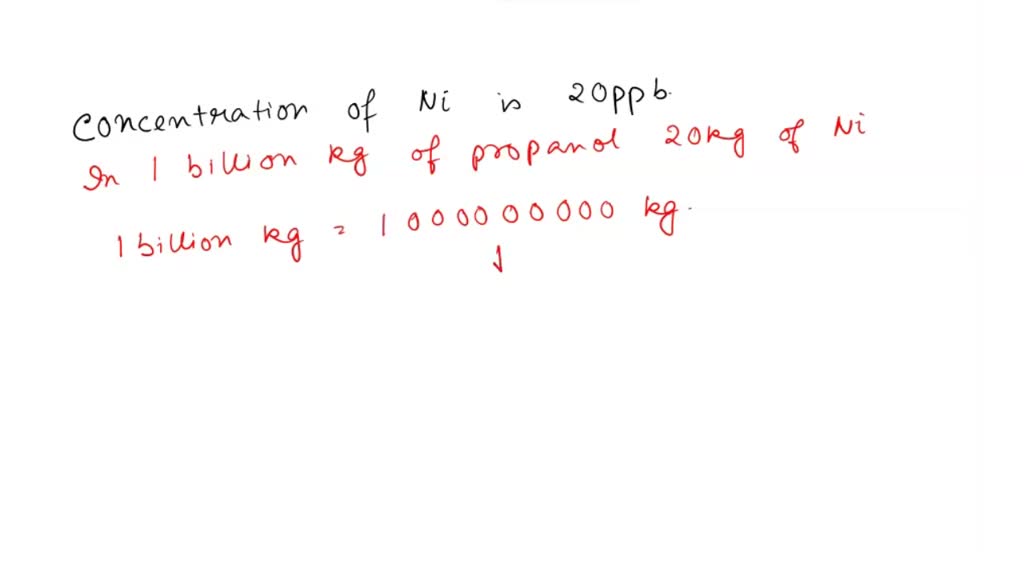 Concentration of Ni is 20ppb.
In 1 billion kg of propanol 20kg of Ni
1 billion kg = 1000000000 kg.